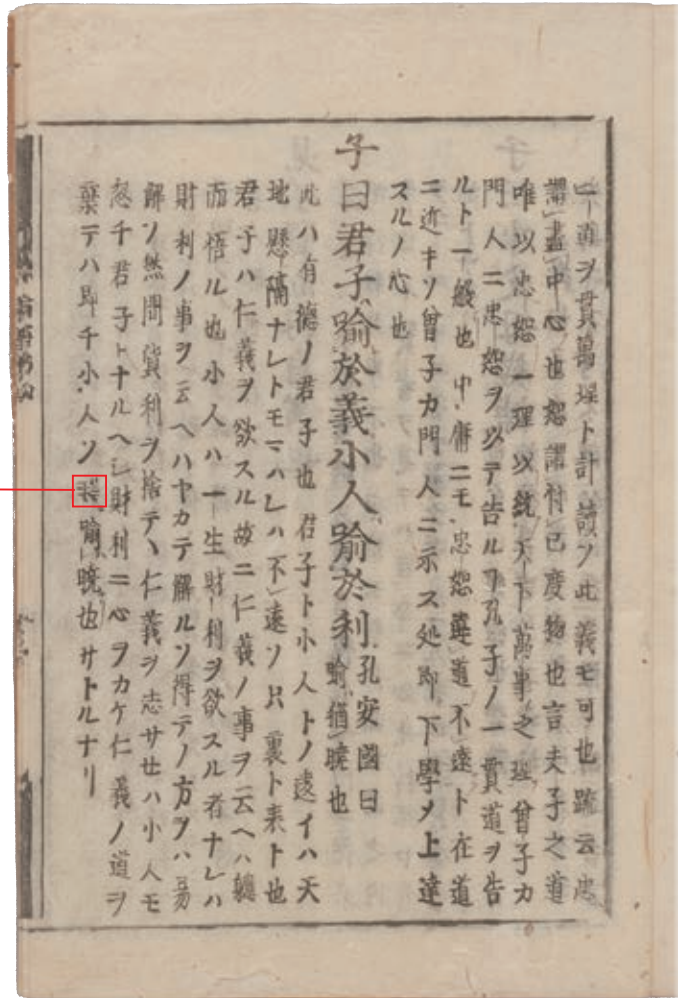 一道ヲ貫萬理ト計讀ソ此義モ可也疏云忠
謂盡中心也恕謂忖己度物也言夫子之道
唯以忠恕一理以統天下萬事之理曾子カ
門人ニ忠恕ヲ以テ告ルヲ孔子ノ一貫道ヲ告
ルト一般也中庸ニモ忠恕違道不遠ト在道
ニ近キソ曾子カ門人ニ示ス処即下學メ上達
スルノ心也
子曰君子喻於義小人喻於利孔安國曰
喻猶曉也
此ハ有德ノ君子也君子ト小人トノ違イハ天
地懸隔ナレトモマハレハ不遠ソ只裏ト表ト也
君子ハ仁義ヲ欲スル故ニ仁義ノ事ヲ云ヘハ
而悟ル也小人ハ一生財利ヲ欲スル者ナレハ
財利ノ事ヲ云ヘハヤカテ解ルソ得テノ方ヲハ易
解ソ然間貨利ヲ捨テヽ仁義ヲ志サセハ小人モ
忽チ君子トナルヘシ財利ニ心ヲカケ仁義ノ道ヲ
棄テハ即チ小人ソ喻曉也サトルナリ